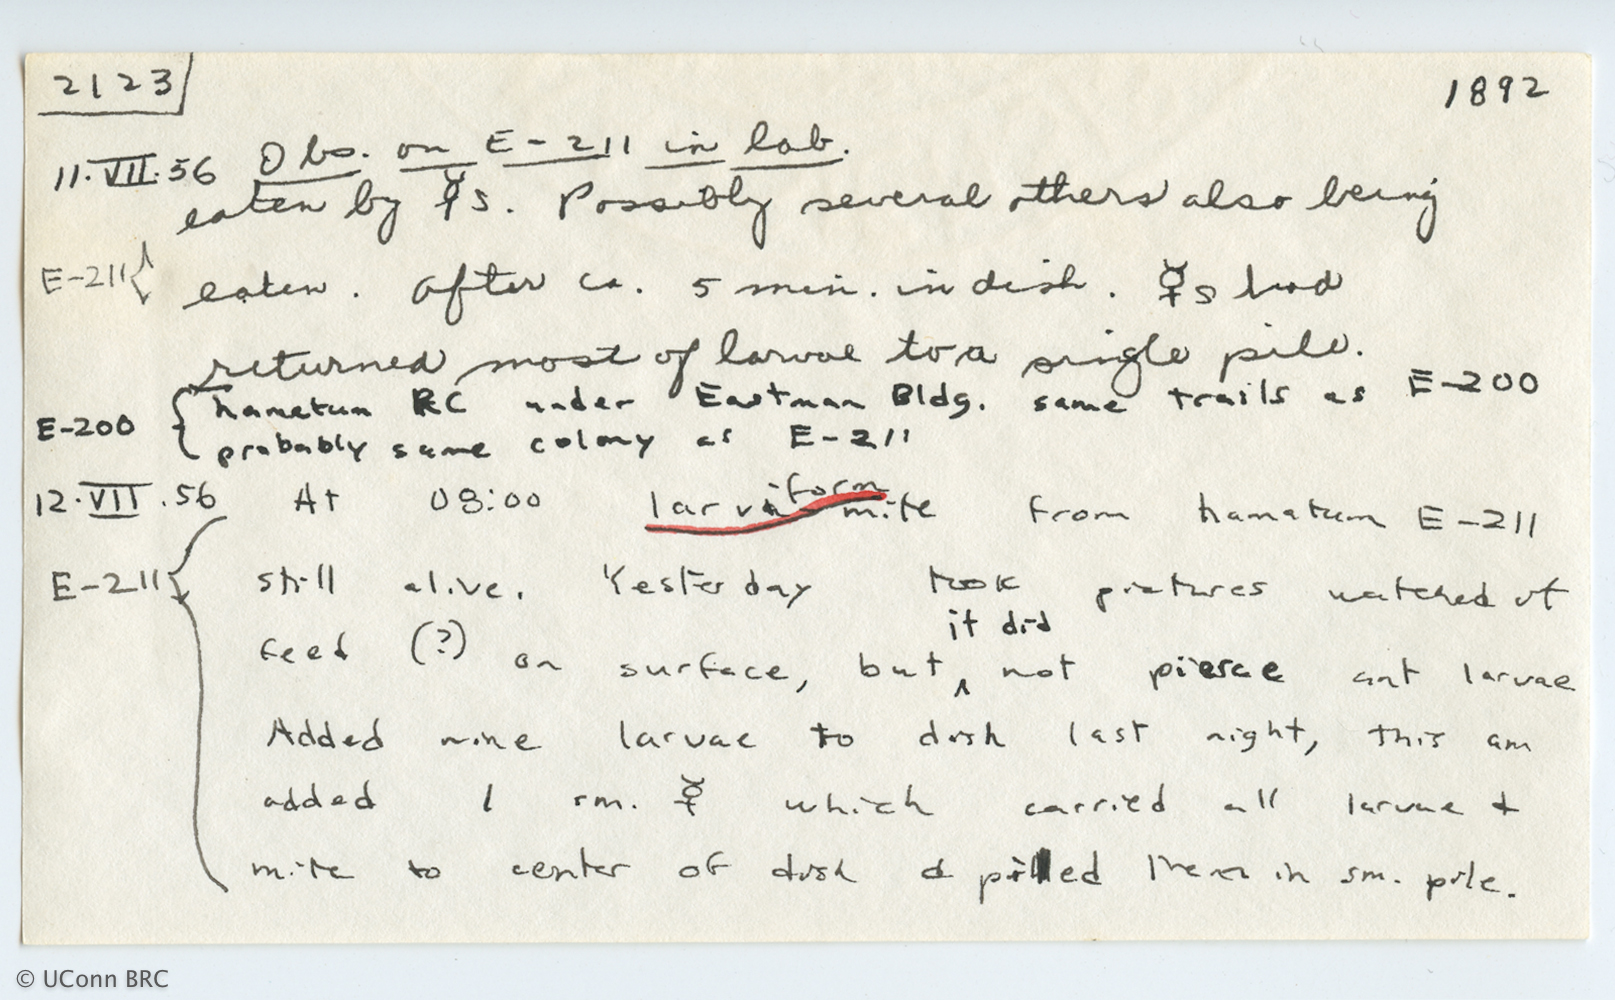 2123
1892
11.VII.56 Obs. on E-211 in lab.
eaten by ☿s. Possibly several others also being
E-211 { eaten. After ca. 5 min. in dish. ☿s had
returned most of larvae to a single pile.
E-200 { hamatum RC under Eastman Bldg. same trails as E-200
probably same colony as E-211
12.VII.56 At 08:00 larvaform mite from hamatum E-211
E-211 { still alive. Yesterday took pictures watched it
feed (?) on surface, but ^it did not pierce ant larvae
Added nine larvae to dish last night, this am
added 1 sm. ☿ which carried all larvae &
mite to center of dish & piled them in sm. pile.
© UConn BRC